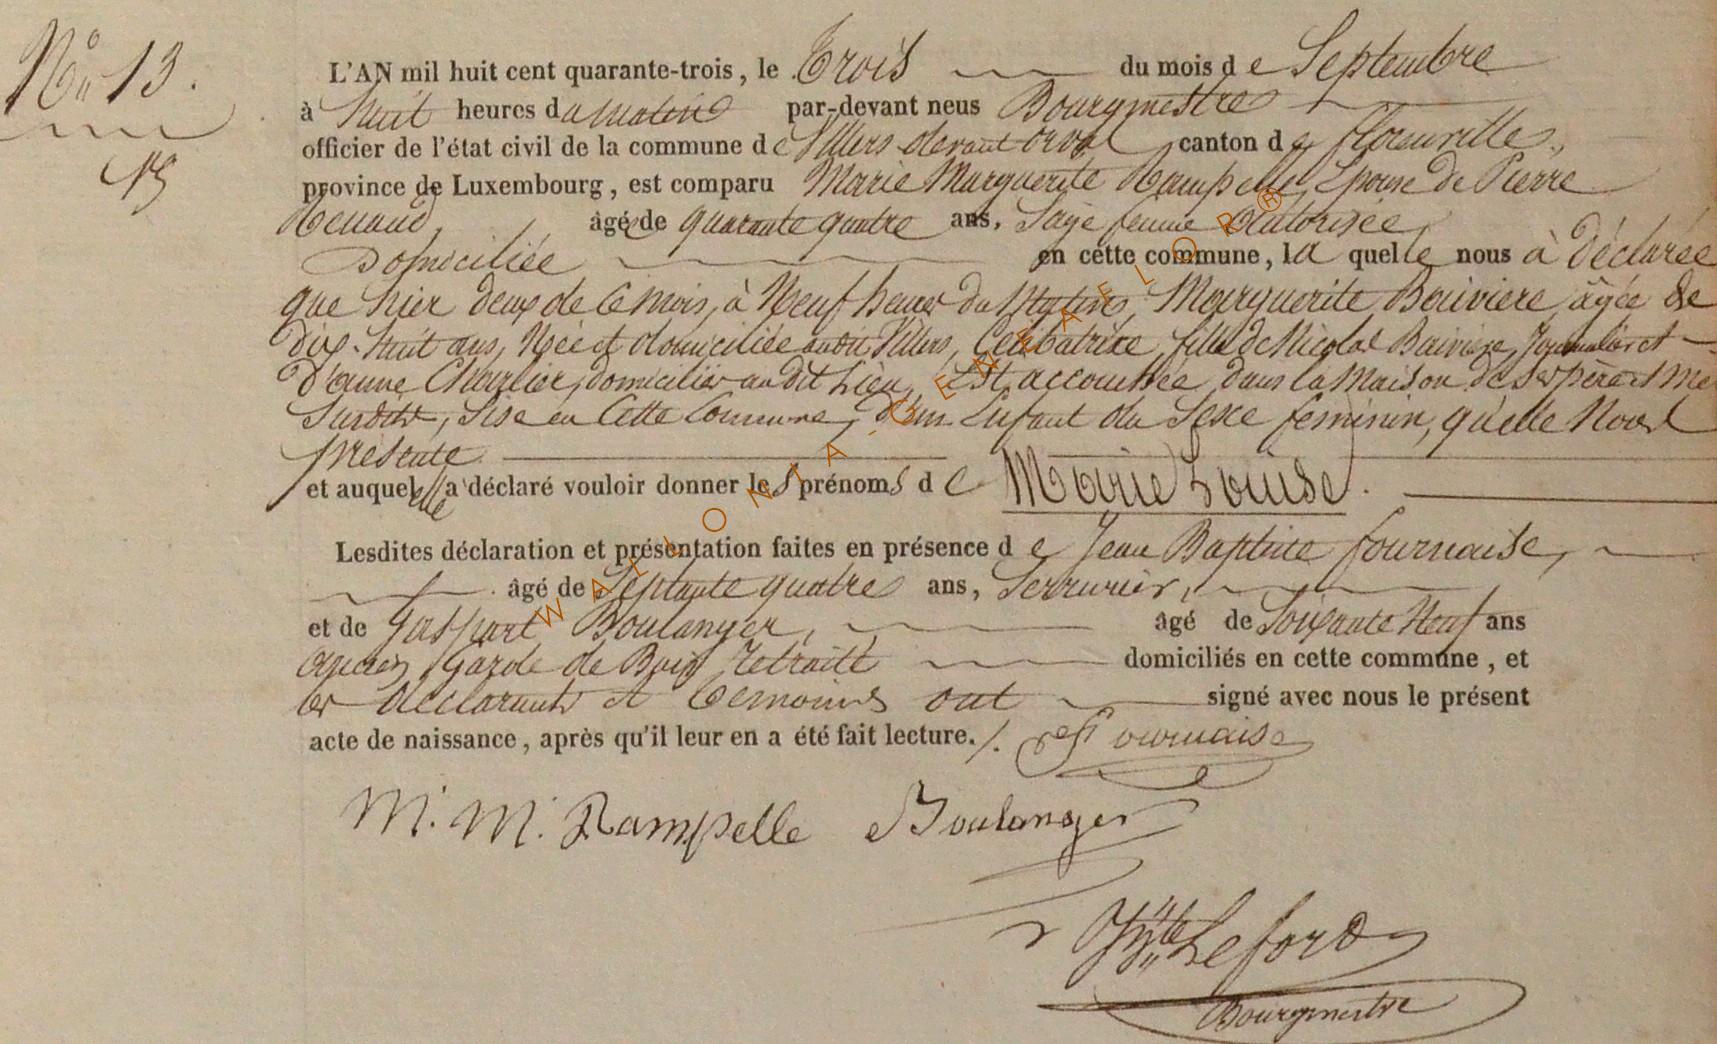 No 13.
L'AN mil huit cent quarante-trois, le Trois du mois de Septembre
à huit heures du matin par-devant nous Bourgmestre
officier de l'état civil de la commune de Villers devant orval canton de florenville,
province de Luxembourg, est comparu Marie Marguerite Rampelle, Epouse de Pierre
Renaud, âgée de quarante quatre ans, Sage femme Autorisée,
Domiciliée en cette commune, la quelle nous à déclarée
que hier deux de ce mois, à Neuf heures du Matin, Marguerite Bouviere, âgée de
dix-huit ans, Née et domiciliée audit Villers, Célibatrice, fille de Nicolas Bouviere, Journalier et
d'anne Charlier, domiciliés au dit Lieu, Est accouchée, dans la Maison de ses père et mère
Surdits, Sise en Cette Commune, d'un Enfant du Sexe féminin, qu'elle Nous
présente
et auquel elle a déclaré vouloir donner les prénoms de Marie Louise.
Lesdites déclaration et présentation faites en présence de Jean Baptiste fournaise,
âgé de Septante quatre ans, Serrurier,
et de Gaspart Boulanger, âgé de Soixante Neuf ans
ancien Garde de Bois retraité domiciliés en cette commune, et
les déclarants et temoins ont signé avec nous le présent
acte de naissance, après qu'il leur en a été fait lecture./. Fournaise
M. M. Rampelle Boulanger
Lefort
Bourgmestre
WALLONIA-GENEAFLOR®